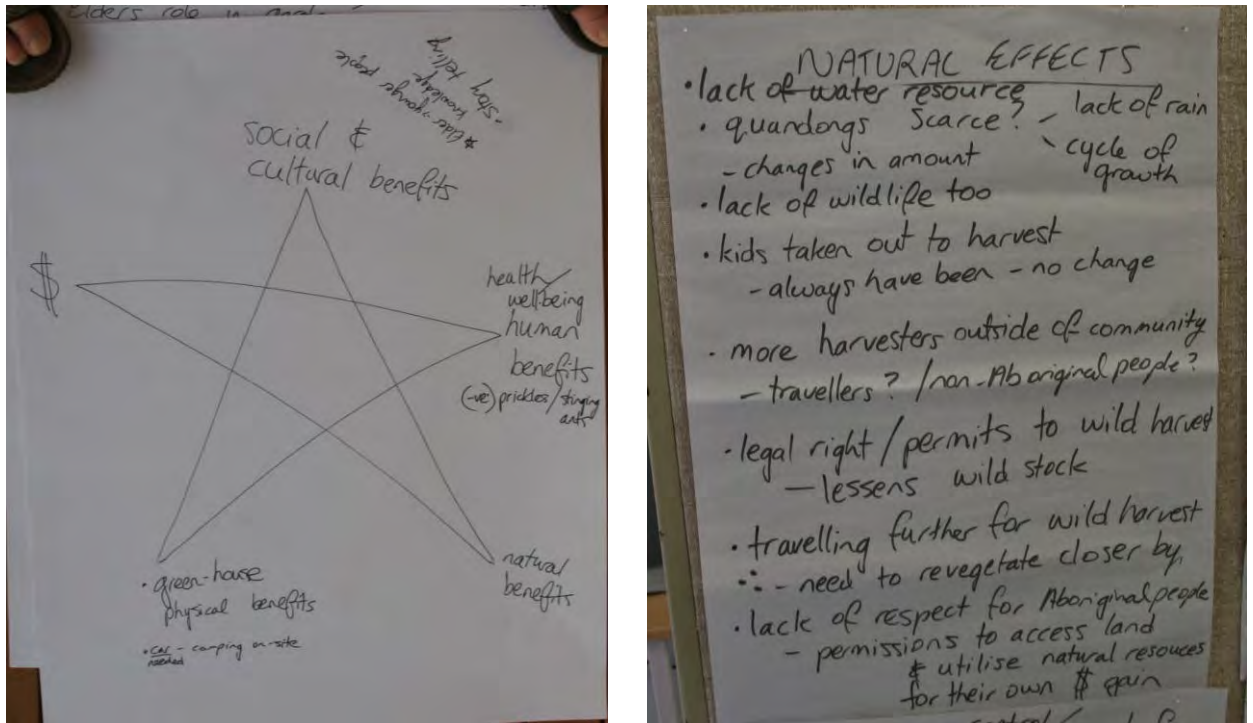 Elders role in
* Elder–younger people
knowledge
- story telling
social &
cultural benefits
$
health/
wellbeing
human
benefits
(-ve) prickles/stinging
ants
natural
benefits
• green-house
physical benefits
• car - camping on-site
needed
NATURAL EFFECTS
• lack of water resource
• quandongs scarce? - lack of rain
- changes in amount - cycle of
growth
• lack of wildlife too
• kids taken out to harvest
- always have been - no change
• more harvesters outside of community
- travellers? /non-Aboriginal people?
• legal right/permits to wild harvest
- lessens wild stock
• travelling further for wild harvest
∴ - need to revegetate closer by.
• lack of respect for Aboriginal people
- permissions to access land
& utilise natural resouces
for their own $ gain